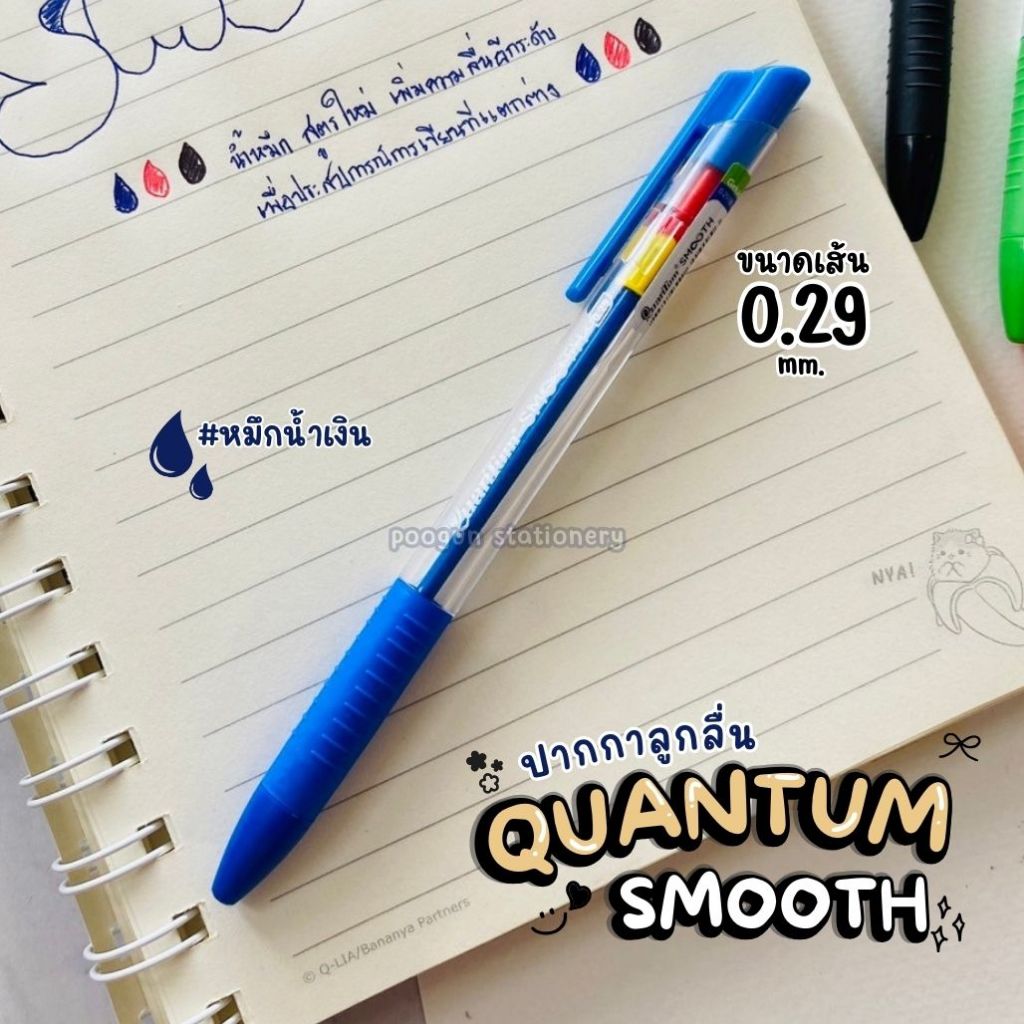 น้ำหมึก สูตรใหม่ เพิ่มความลื่นอีกระดับ
เพื่อประสบการณ์การเขียนที่แตกต่าง
ขนาดเส้น
0.29
mm.
#หมึกน้ำเงิน
Quantum SMOOTH
Quantum SMOOTH
poogun stationery
NYA!
ปากกาลูกลื่น
QUANTUM
SMOOTH
© Q-LIA/Bananya Partners